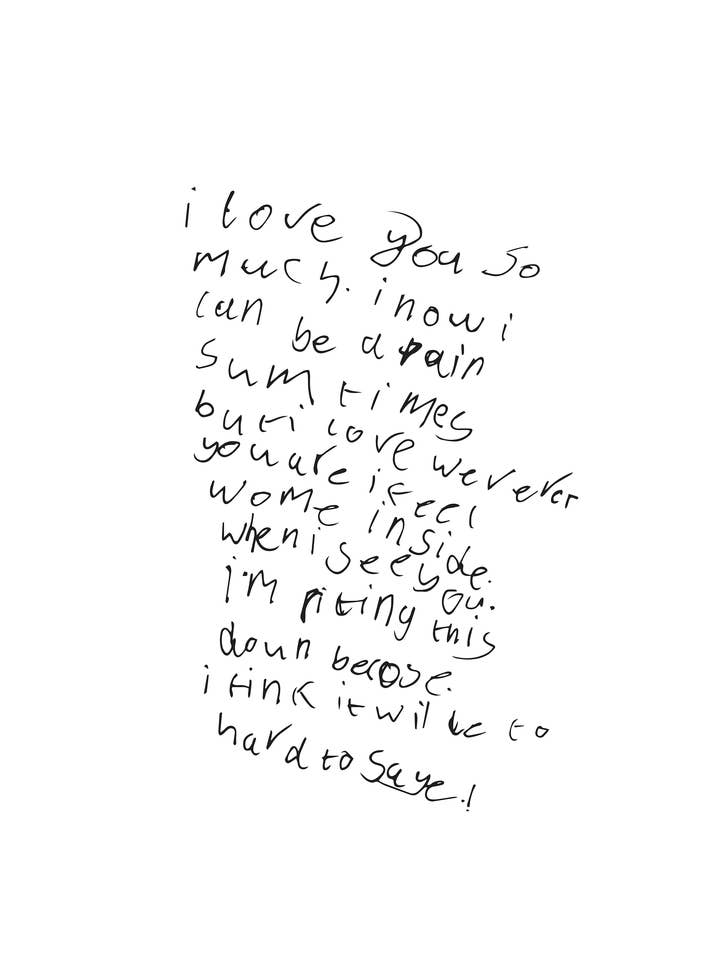 i love you so
much. i now i
can be a pain
sum times
but i love wer ever
you are i feel
wome inside.
when i see you.
i'm riting this
doun becose.
i tink it wil be to
hard to saye.!